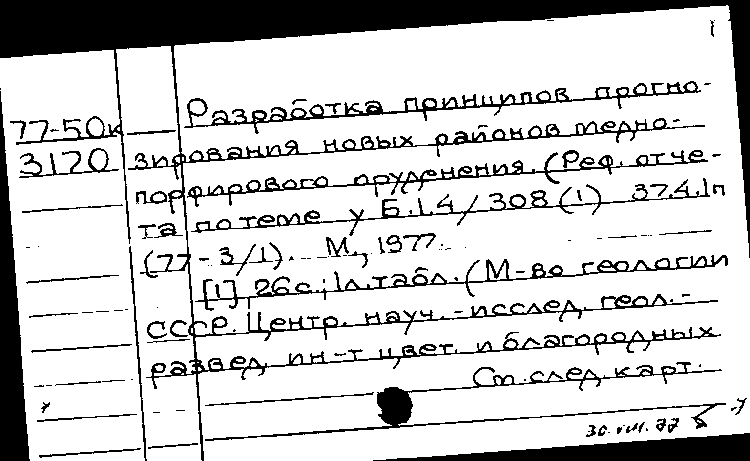 1
77-50к Разработка принципов прогно-
3170 зирования новых районов медно-
порфирового оруденения. (Реф. отче-
та по теме У Б.1.4/308 (1) 37.4.1п
(77-3/1). М., 1977.
[1], 26 с.; 1 л. табл. (М-во геологии
СССР. Центр. науч.-исслед. геол.-
развед. ин-т цвет. и благородных
См. след. карт.
30.VIII.77